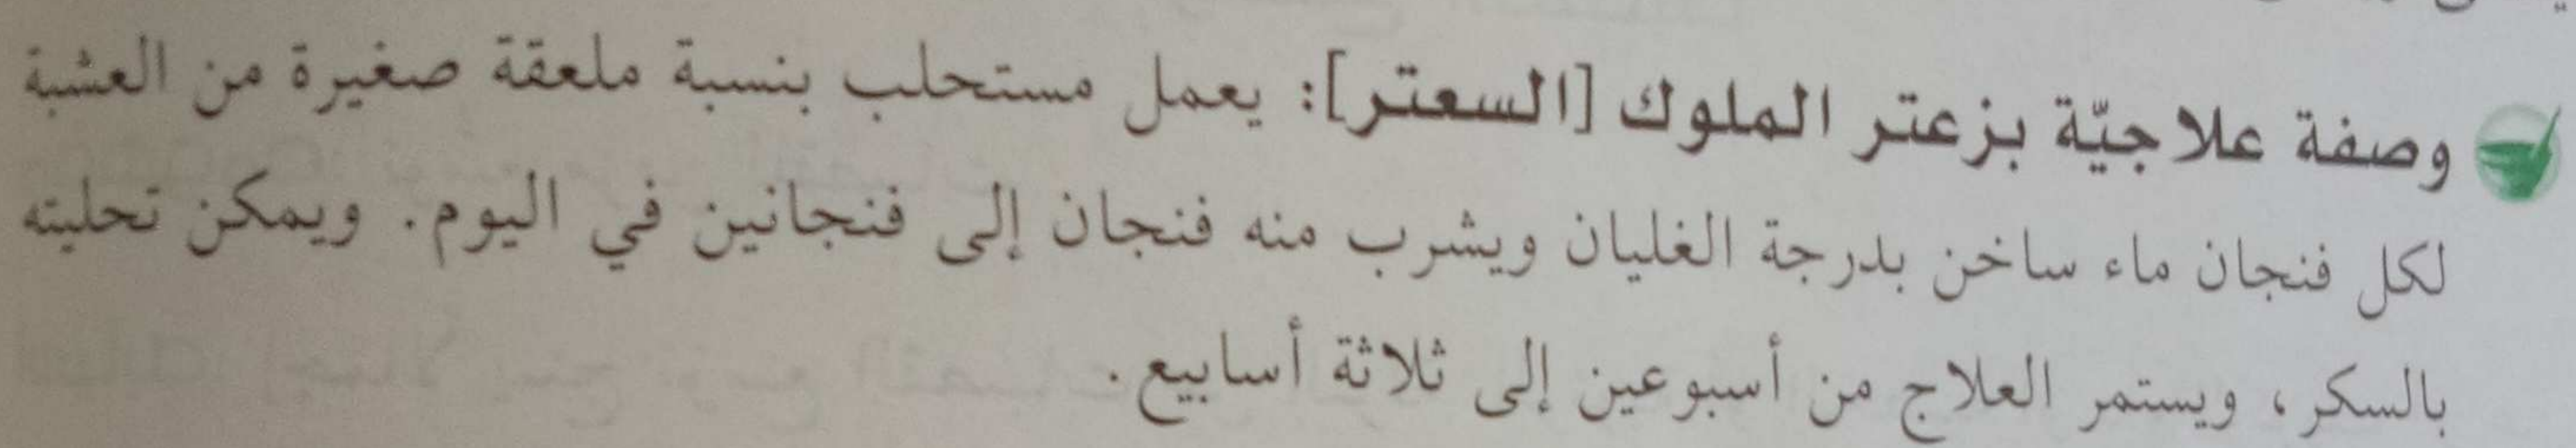 وصفة علاجيّة بزعتر الملوك [السعتر]: يعمل مستحلب بنسبة ملعقة صغيرة من العشبة
لكل فنجان ماء ساخن بدرجة الغليان ويشرب منه فنجان إلى فنجانين في اليوم. ويمكن تحليته
بالسكر، ويستمر العلاج من أسبوعين إلى ثلاثة أسابيع.